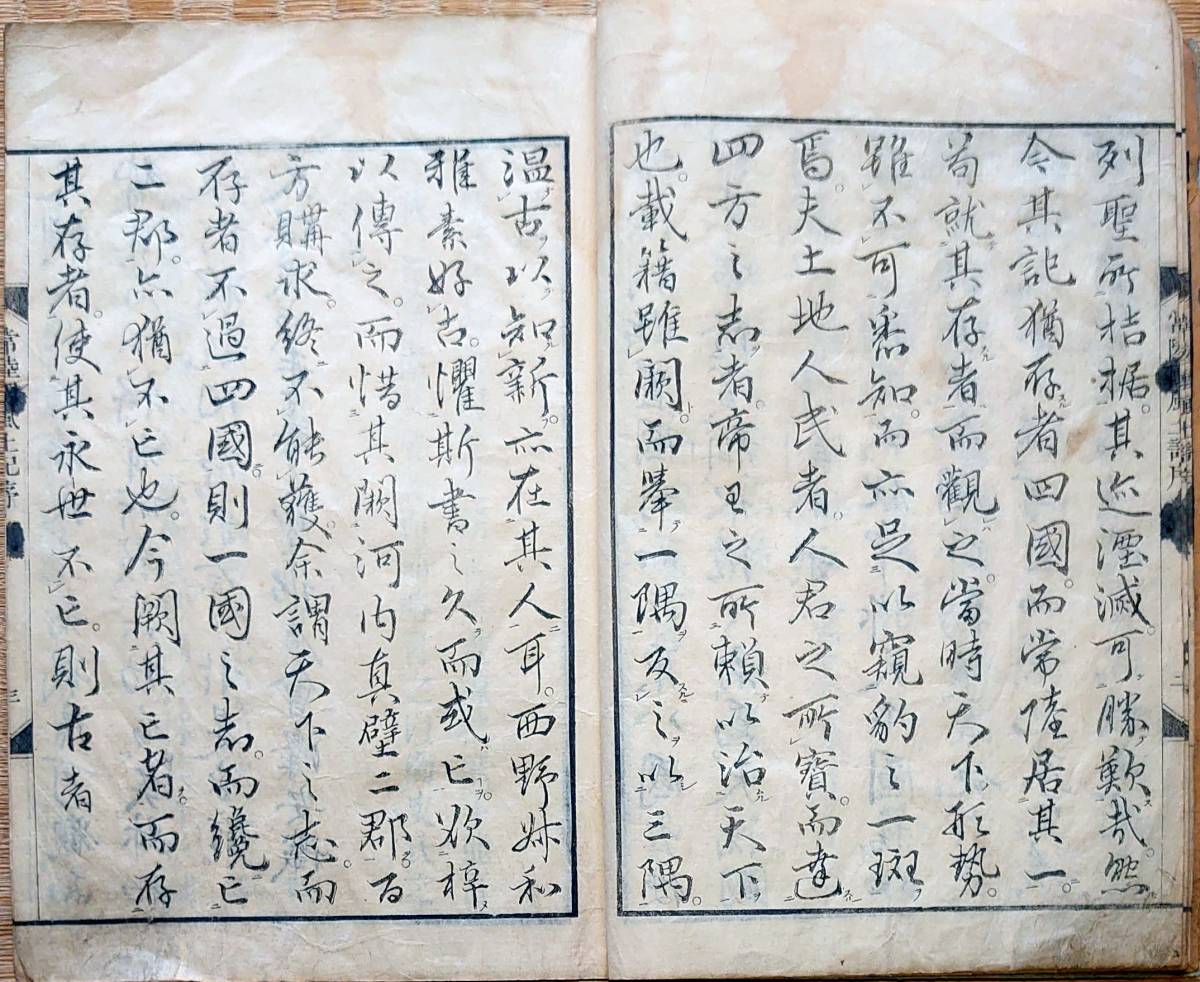 列聖所拮据。其迹湮滅。可勝歎哉。然
今其記猶存者四國。而常陸居其一。
苟就其存者而觀之。當時天下形勢。
雖不可悉知。而亦足以窺豹之一斑
焉。夫土地人民者。人君之所寶。而達
四方之志者。帝王之所賴以治天下
也。載籍雖闕。而舉一隅反之以三隅。
溫古以知新。亦在其人耳。西野
雅素好古。懼斯書之久而或亡。欲梓
以傳之。而惜其闕河内真壁二郡。百
方購求。終不能獲。余謂天下之志。而
存者不過四國。則一國之志。而纔亡
二郡。亦猶不亡也。今闕其亡者。而存
其存者。使其永世不亡。則古者
常陸風土記序
三